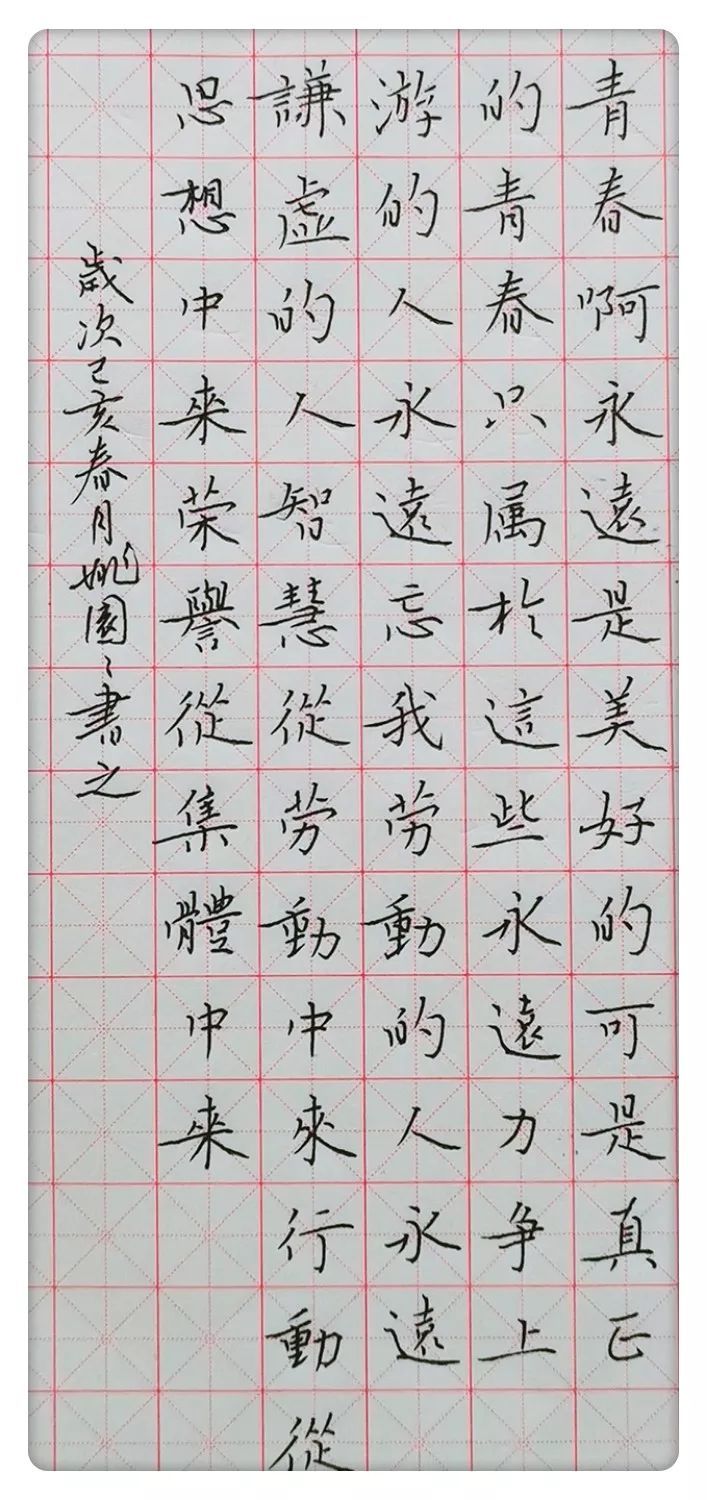 青春啊永遠是美好的可是真正
的青春只属於這些永遠力争上
游的人永遠忘我劳動的人永遠
謙虛的人智慧從劳動中來行動從
思想中来荣譽從集體中来
歲次己亥春月姚園〻書之